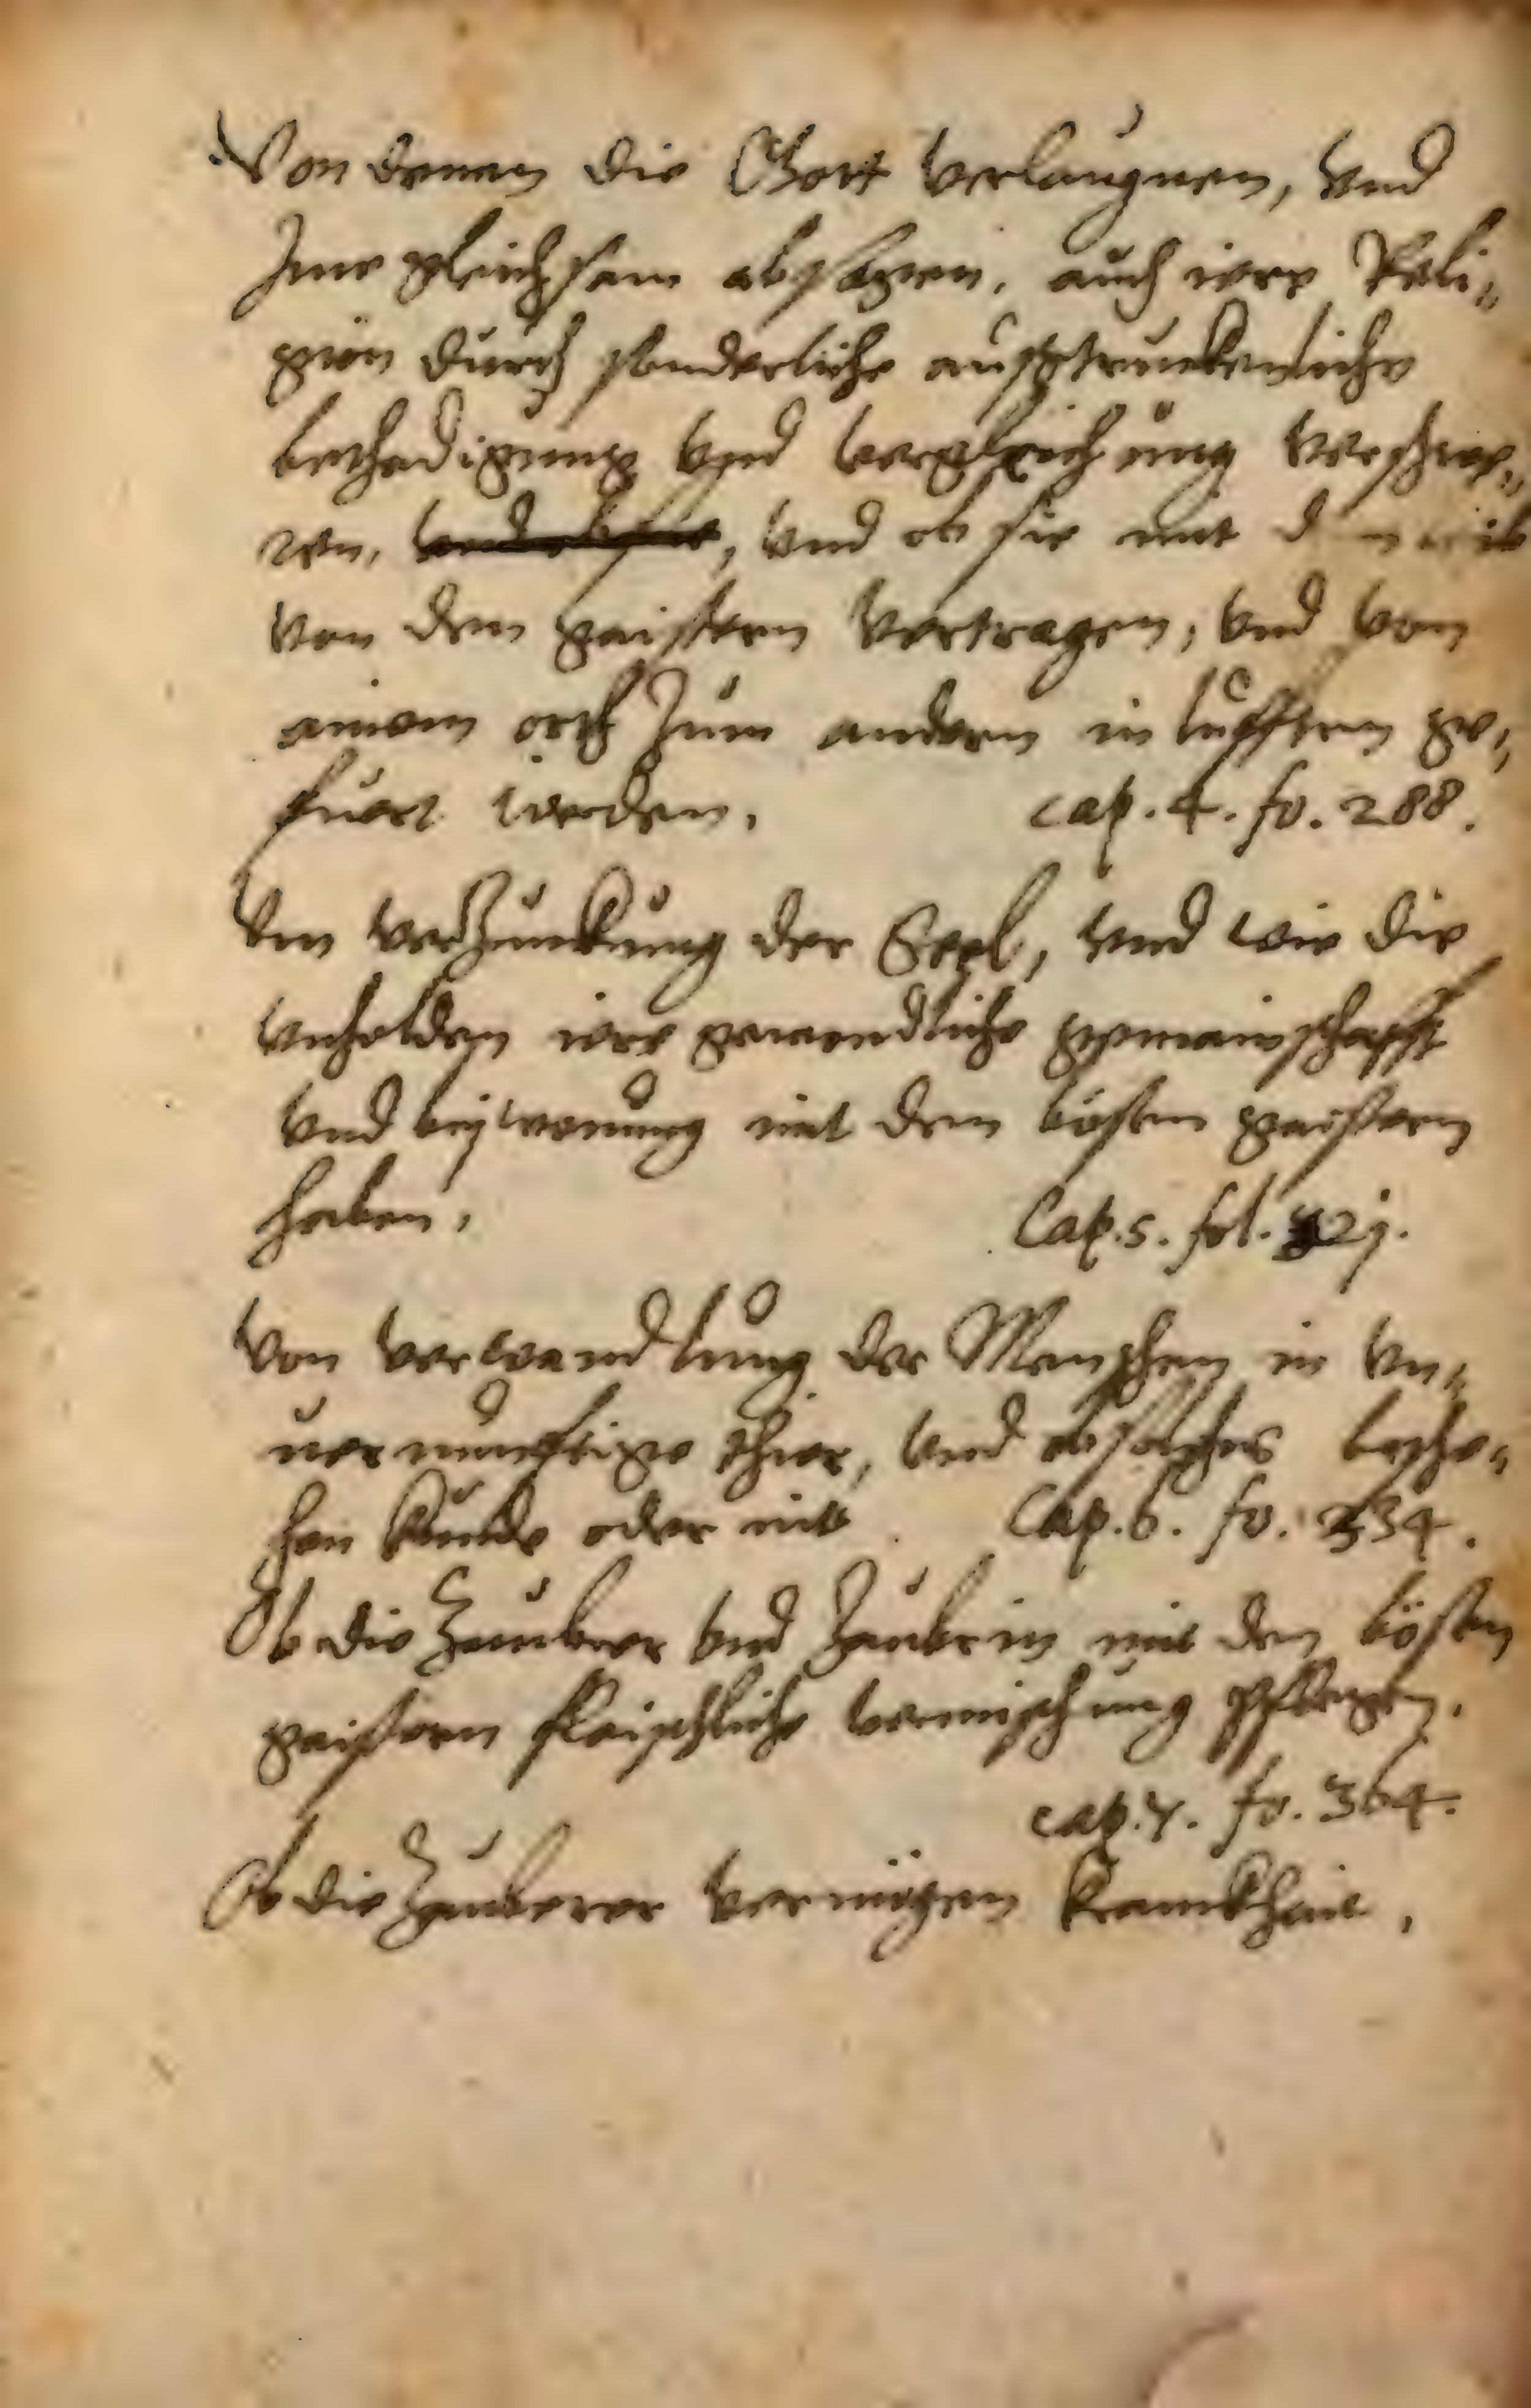 Von denen die Gott verlaugnen, vnd
Jme gleichsam absagen, auch iere Reli„
gion durch sonderliche ausstruckenliche
bethadigung vnd vergleichung verschwe„
ren, und ob sie mit dem leib
von dem gaistern vertragen, vnd vom
ainem orth zum andern in lüfften ge„
fuert werden. cap. 4. fo. 288.
Von verzuckung der Seel, vnd wie die
vnholden iere gemeindliche gemainschafft
vnd beÿwonung mit dem bösen gaistern
haben. Cap. 5. fol. 32j.
Von verwandlung der Menschen in vn„
uernunftige thier, vnd ob solches besche„
hen kunde oder nit. Cap. 6. fo. 334.
Ob die Zauberer vnd Zauberin mit den bösen
gaistern fleischliche vermischung pflegen.
cap. 7. fo. 364.
Ob die Zauberer vermügen kranckhait,